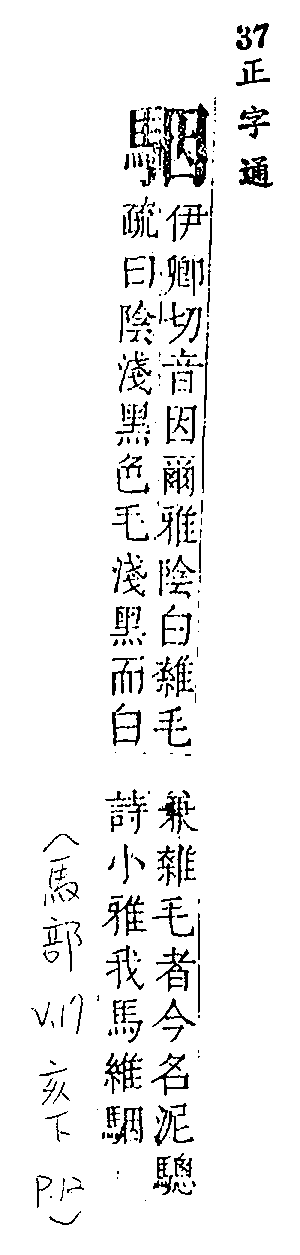 37正字通
駰
伊卿切音因爾雅陰白雜毛
疏曰陰淺黑色毛淺黑而白
兼雜毛者今名泥驄
詩小雅我馬維駰
(馬部 V.17 亥下 P.12)